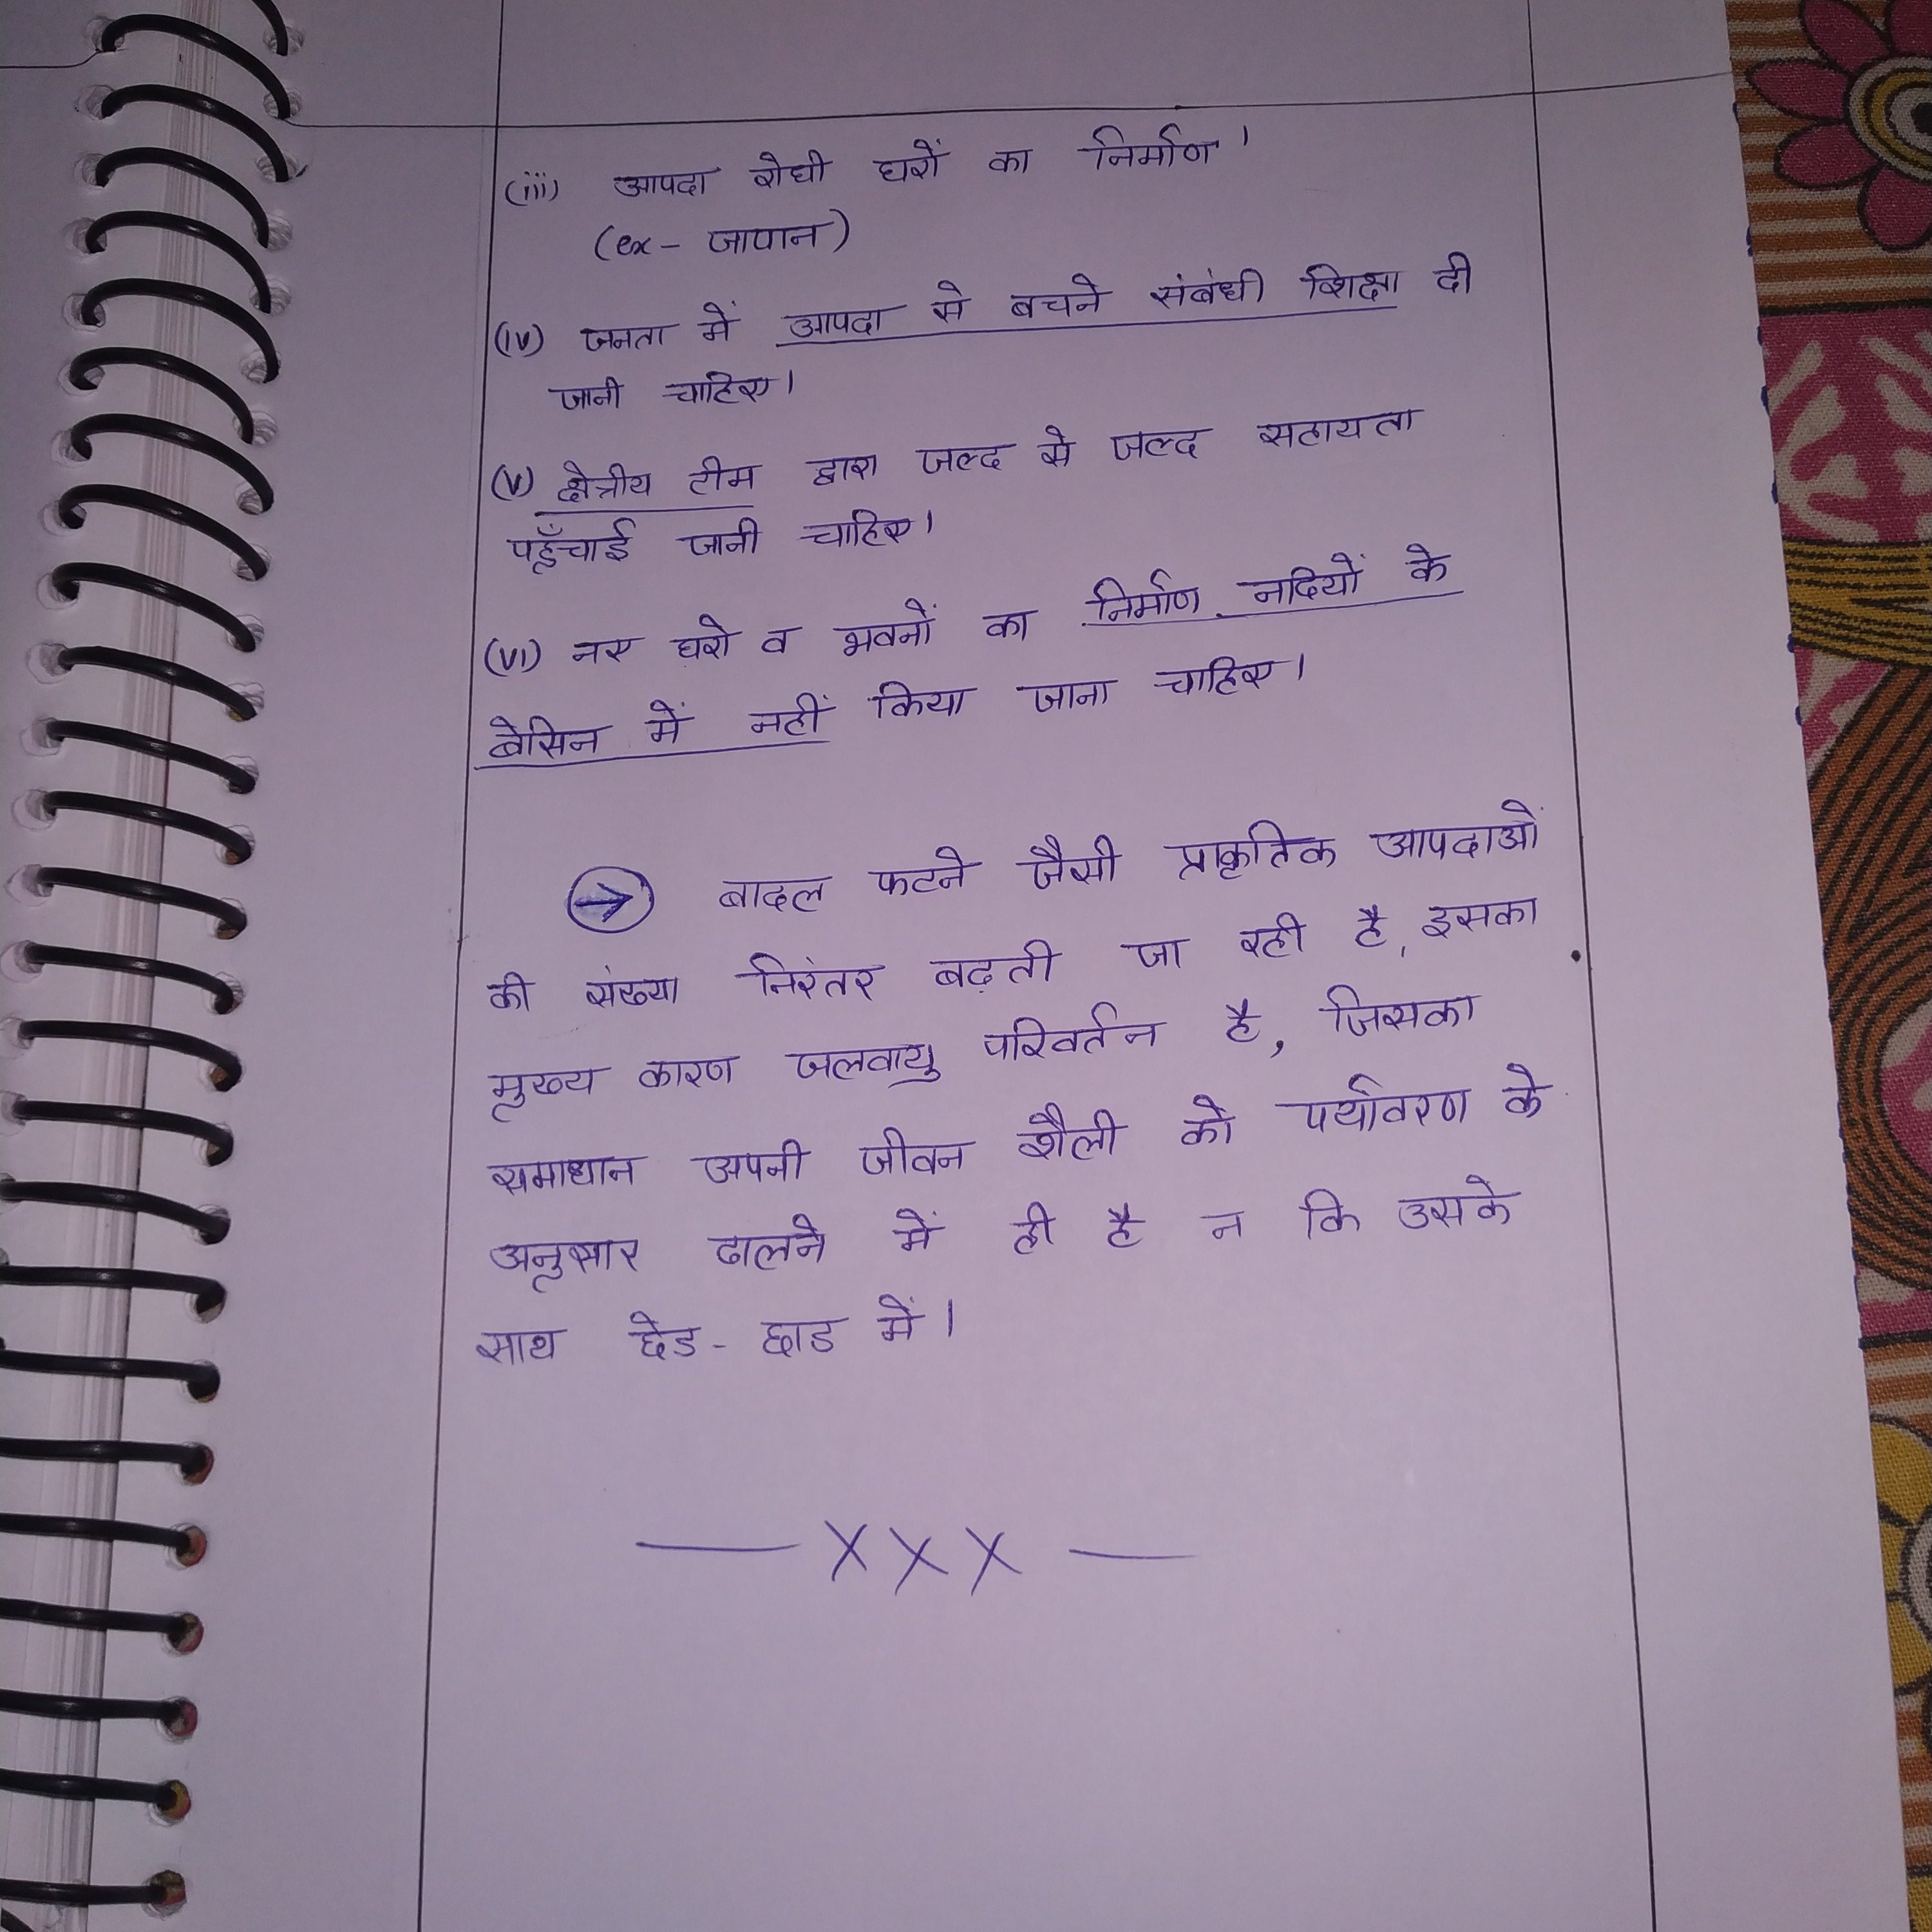 (iii) आपदा रोधी घरों का निर्माण।
(ex - जापान)
(iv) जनता में आपदा से बचने संबंधी शिक्षा दी
जानी चाहिए।
(v) क्षेत्रीय टीम द्वारा जल्द से जल्द सहायता
पहुँचाई जानी चाहिए।
(vi) नए घरो व भवनों का निर्माण नदियों के
बेसिन में नहीं किया जाना चाहिए।
→ बादल फटने जैसी प्राकृतिक आपदाओं
की संख्या निरंतर बढ़ती जा रही है, इसका
मुख्य कारण जलवायु परिवर्तन है, जिसका
समाधान अपनी जीवन शैली को पर्यावरण के
अनुसार ढालने में ही है न कि उसके
साथ छेड - छाड में।
— X X X —